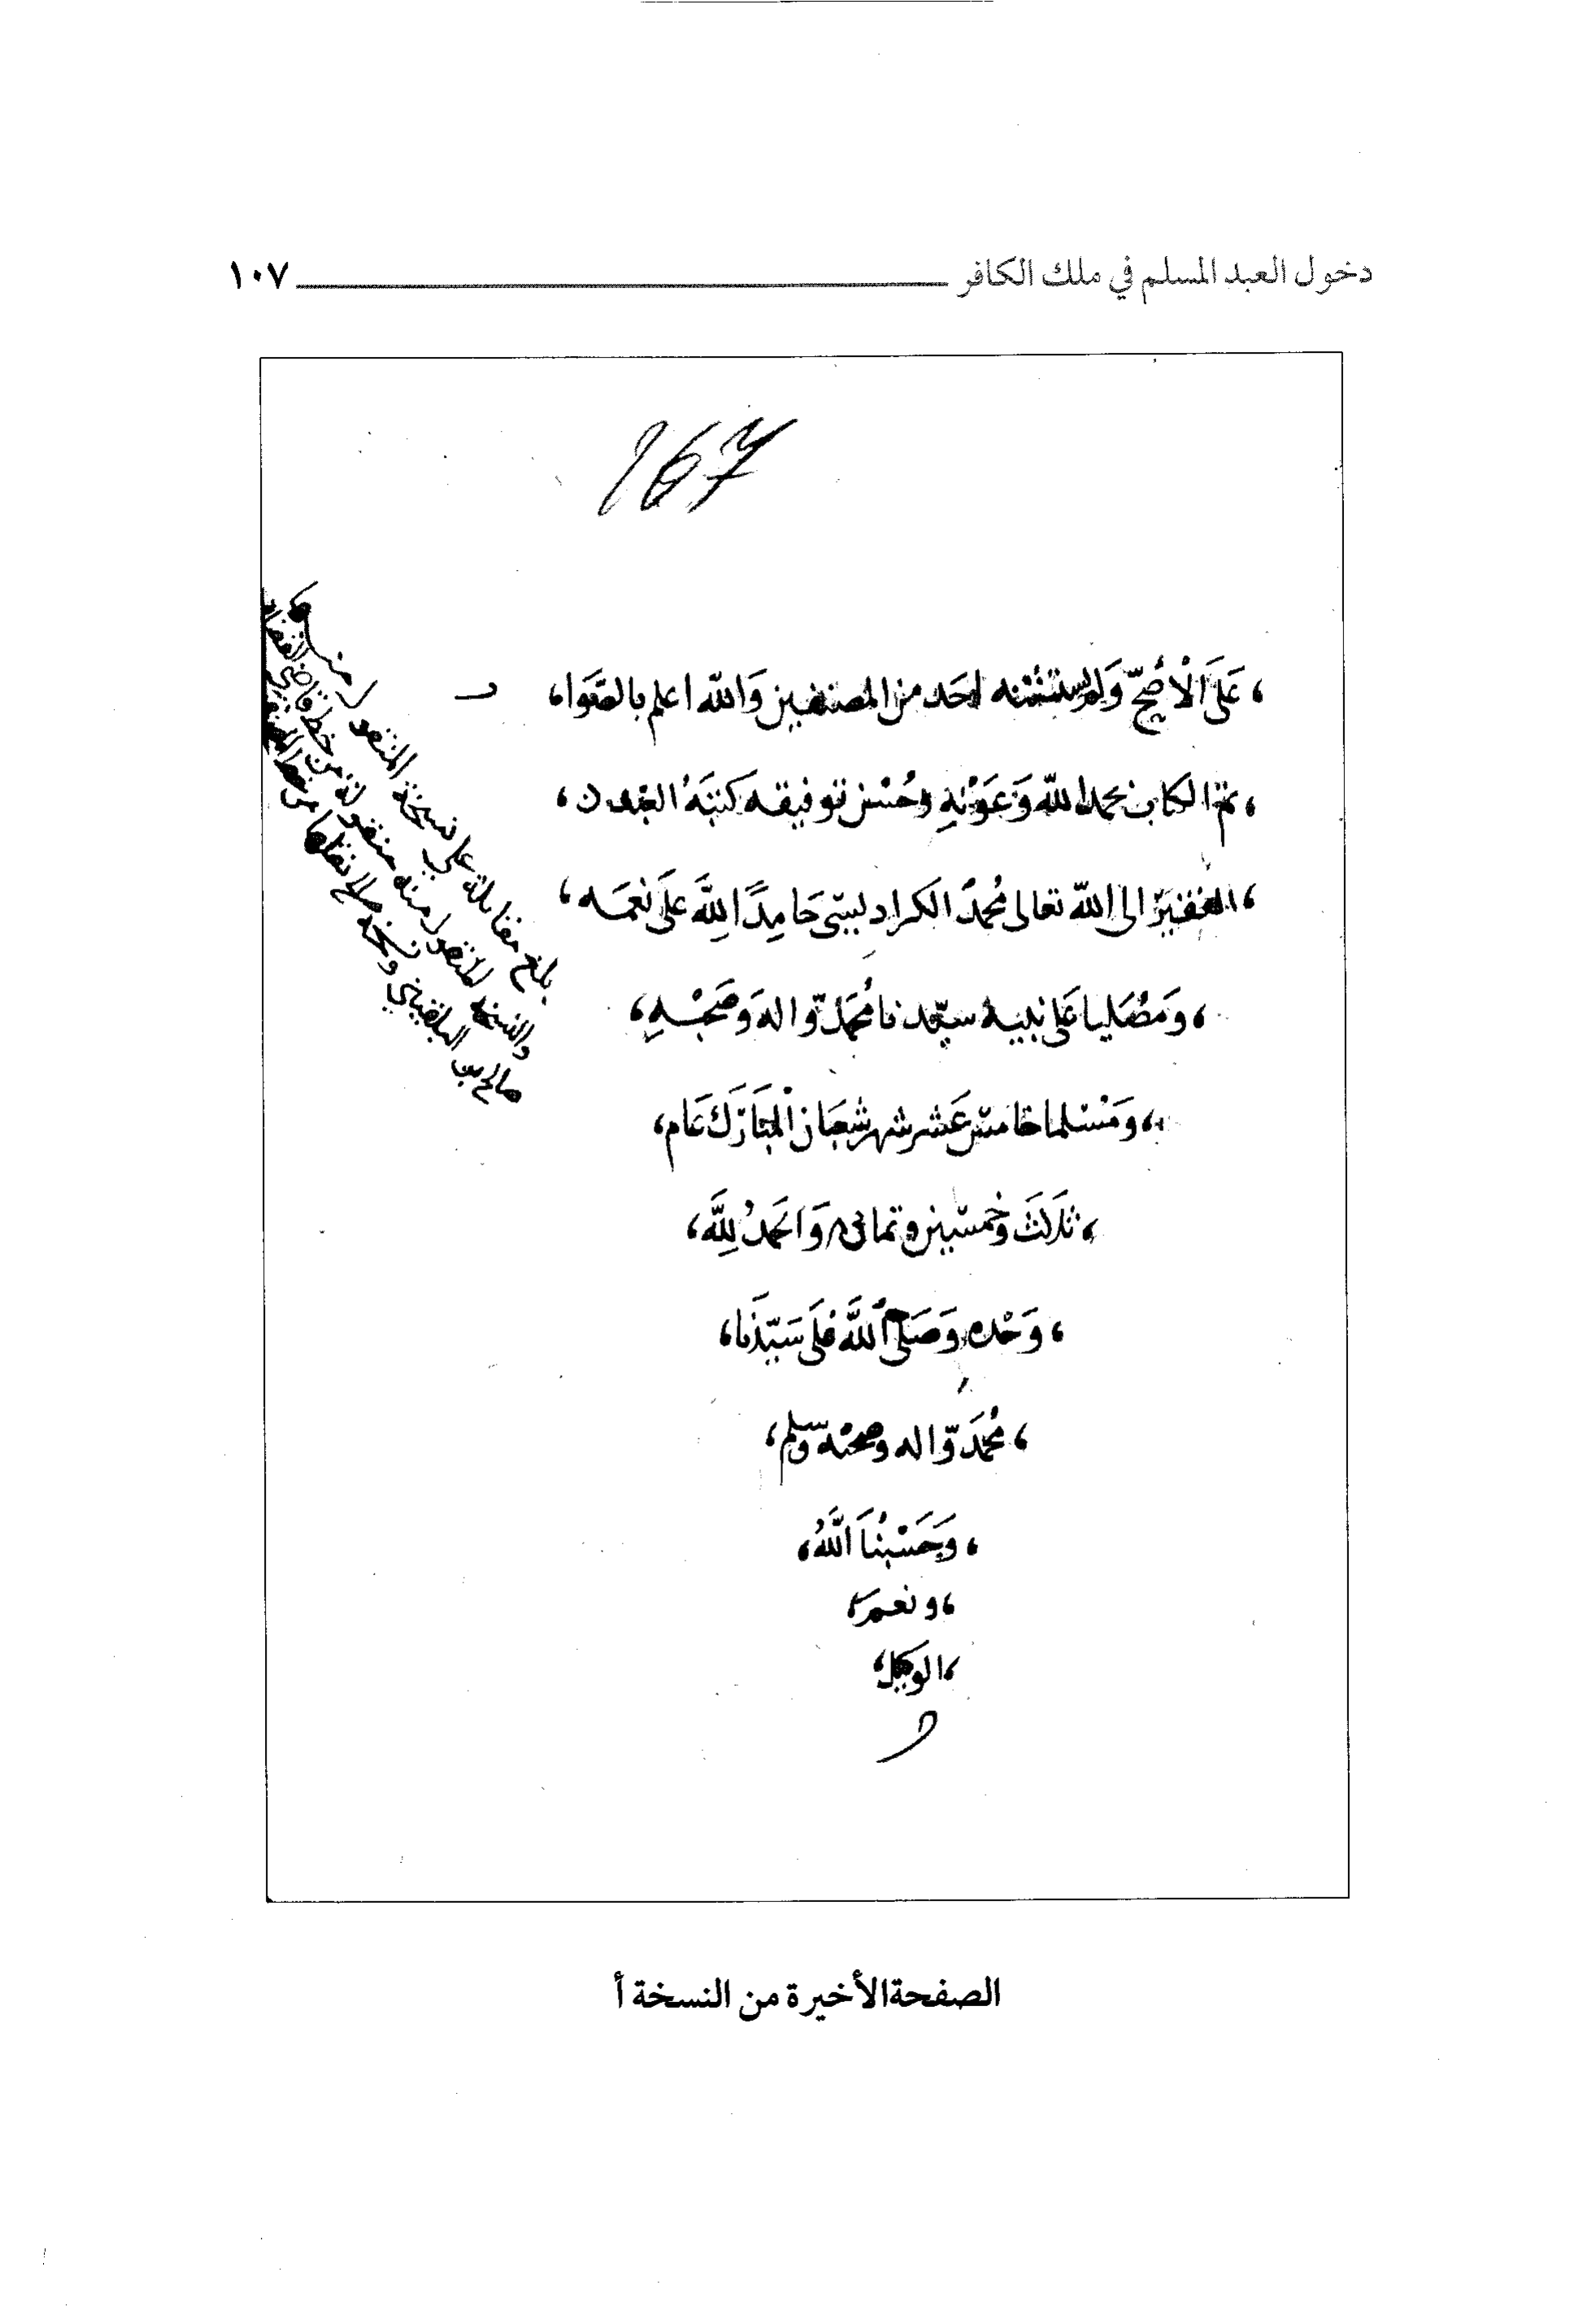 دخول العبد المسلم في ملك الكافر ١٠٧
167
، عَلَى الْأَصَحِّ وَلم يستثنه احَد من المصنفين وَالله اعلم بالصَّوَا،
، تم الكتاب بحمد الله وَعَوْنِهِ وحُسْن توفيقه كتبَهُ العَبْد ن،
، الفقيرُ الى الله تعالى مُحمدُ الكرادبيسى حَامِدًا لِلَّهِ عَلَى نِعَمه،
، ومَصُليا عَلى نبيه سيّدنا مُحَمَّد وّاله وَصَحْبِهِ،
، ومَسْلما خامسْ عَشر شهر شعبَان الْمبَارَك عَام،
، ثَلَاث وخمْسين وثمانى وَالحَمدُ لِلَّه،
، وَحْده وَصَلى اللَّه عَلَى سَيّدنَا،
، مُحمَدّ وّاله وصحبْه وسلم،
، وَحَسْبُنَا اللَّهُ،
، ونعم،
، الوكيل،
بلغ مقابلة على نسخة المنقول منه
والنسخة المنقول منه منقولة من خط قاضي القضاة
صالح بن البلقيني ونسخة صالح نقلها من خط
الصفحة الأخيرة من النسخة أ